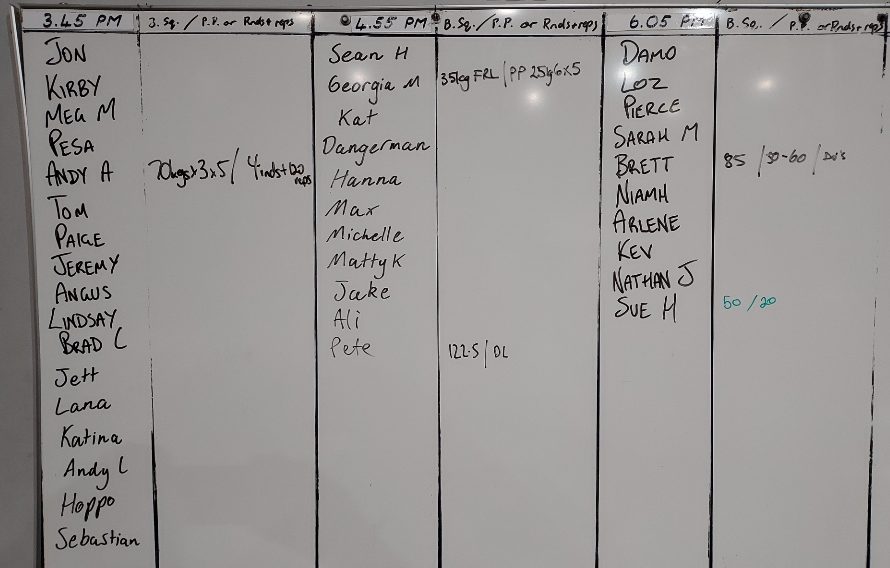 3.45 PM
B.Sq. / P.P. or Rnds+reps
JON
KIRBY
MEG M
PESA
ANDY A 70kgs×3×5/ 4rnds+120 reps
TOM
PAIGE
JEREMY
ANGUS
LINDSAY
BRAD L
Jett
Lana
Katina
Andy L
Hoppo
Sebastian
4.55 PM
B.Sq. / P.P. or Rnds+reps
Sean H
Georgia M 35kg FRL / PP 25kg 6×5
Kat
Dangerman
Hanna
Max
Michelle
Matty K
Jake
Ali
Pete 122.5 / DL
6.05 PM
B.Sq. / P.P. or Rnds+reps
DAMO
LOZ
PIERCE
SARAH M
BRETT 85 / 50-60 / DU's
NIAMH
ARLENE
KEV
NATHAN J
SUE H 50 / 20